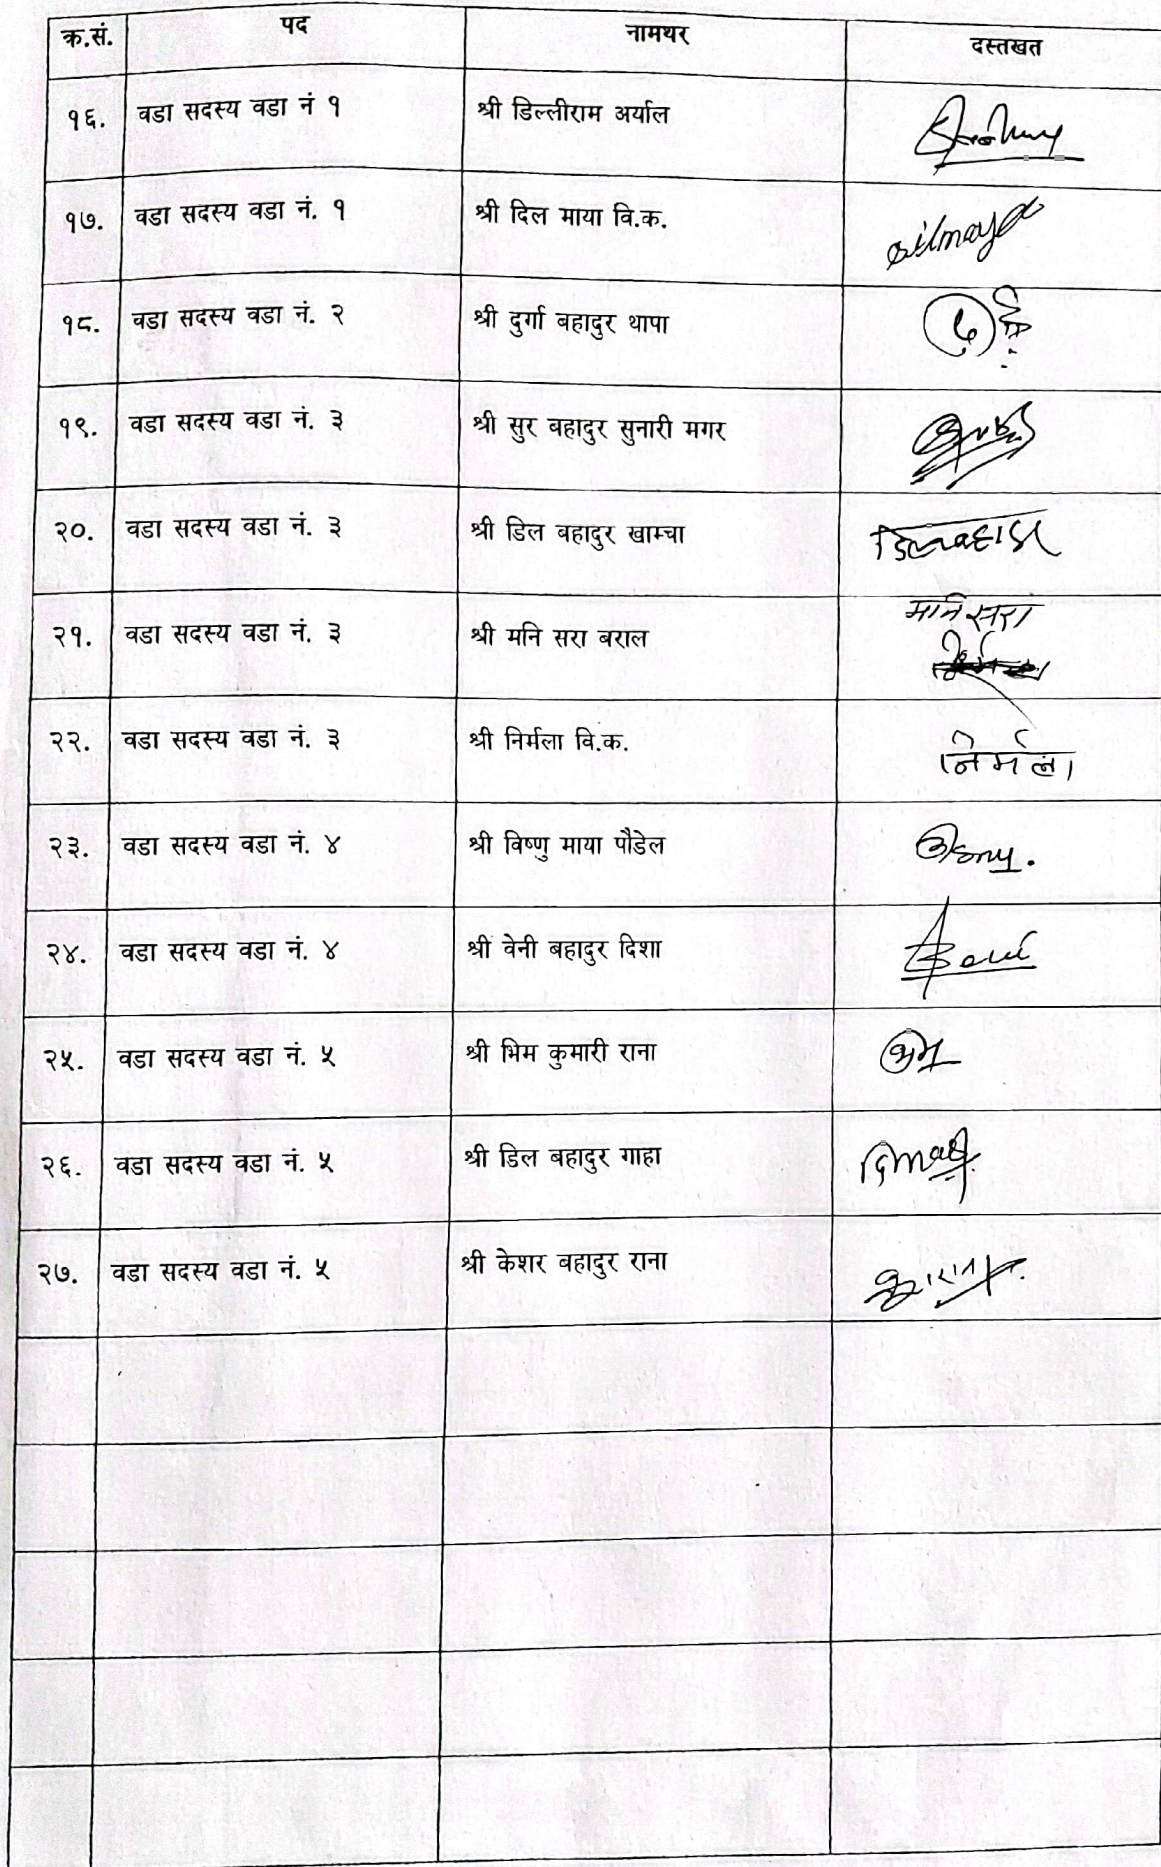 क्र.सं. पद नामथर दस्तखत
१६. वडा सदस्य वडा नं १ श्री डिल्लीराम अर्याल
१७. वडा सदस्य वडा नं. १ श्री दिल माया वि.क. dilmaya
१८. वडा सदस्य वडा नं. २ श्री दुर्गा बहादुर थापा
१९. वडा सदस्य वडा नं. ३ श्री सुर बहादुर सुनारी मगर
२०. वडा सदस्य वडा नं. ३ श्री डिल बहादुर खाम्चा डिलबहादुर
२१. वडा सदस्य वडा नं. ३ श्री मनि सरा बराल मनिसरा
२२. वडा सदस्य वडा नं. ३ श्री निर्मला वि.क. निर्मला
२३. वडा सदस्य वडा नं. ४ श्री विष्णु माया पौडेल
२४. वडा सदस्य वडा नं. ४ श्री वेनी बहादुर दिशा
२५. वडा सदस्य वडा नं. ५ श्री भिम कुमारी राना
२६. वडा सदस्य वडा नं. ५ श्री डिल बहादुर गाहा
२७. वडा सदस्य वडा नं. ५ श्री केशर बहादुर राना